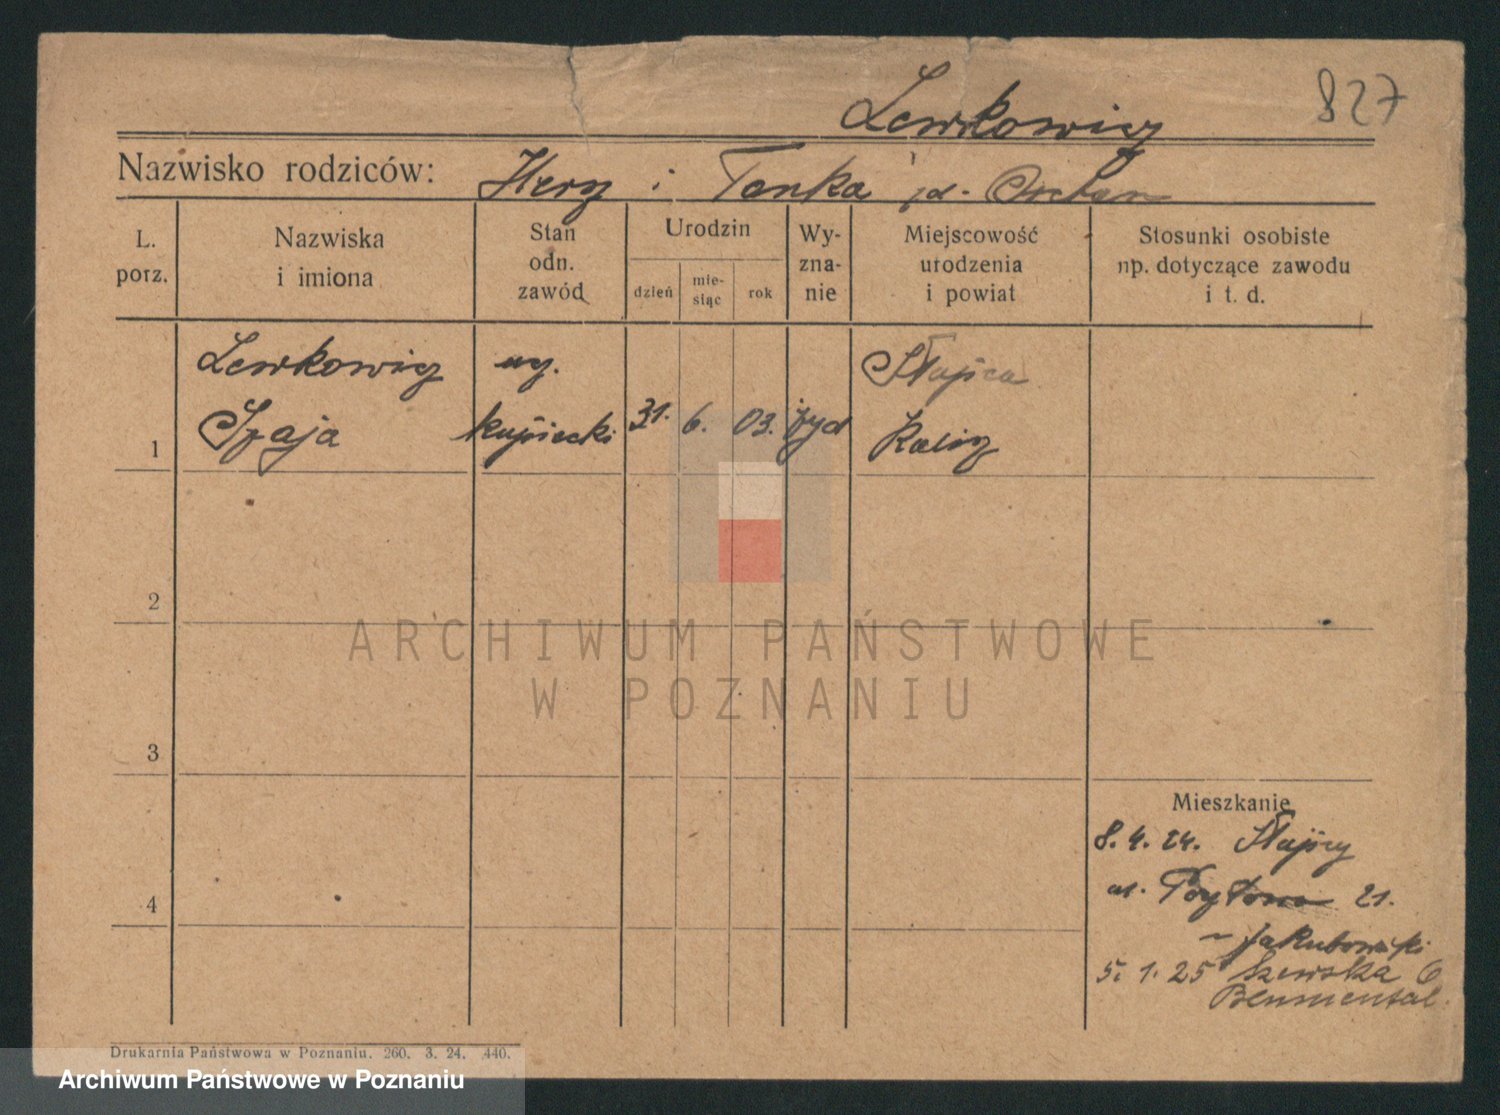 827
Lewkowicz
Nazwisko rodziców: Herz i Tonka
L. porz.
Nazwiska i imiona
Stan odn. zawód
Urodzin
dzień
mie-
siąc
rok
Wy-
zna-
nie
Miejscowość urodzenia i powiat
Stosunki osobiste np. dotyczące zawodu i t. d.
Lewkowicz
Szaja
kupiecki
31. 6. 03.
żyd
Słupca
Kalisz
1
2
3
4
Mieszkanie
8. 4. 24. Słupcy
ul. 21.
Jakubowski
5. 1. 25 Szewska 6
Blumental.
Drukarnia Państwowa w Poznaniu. 260. 3. 24. 440.
ARCHIWUM PAŃSTWOWE
W POZNANIU
Archiwum Państwowe w Poznaniu